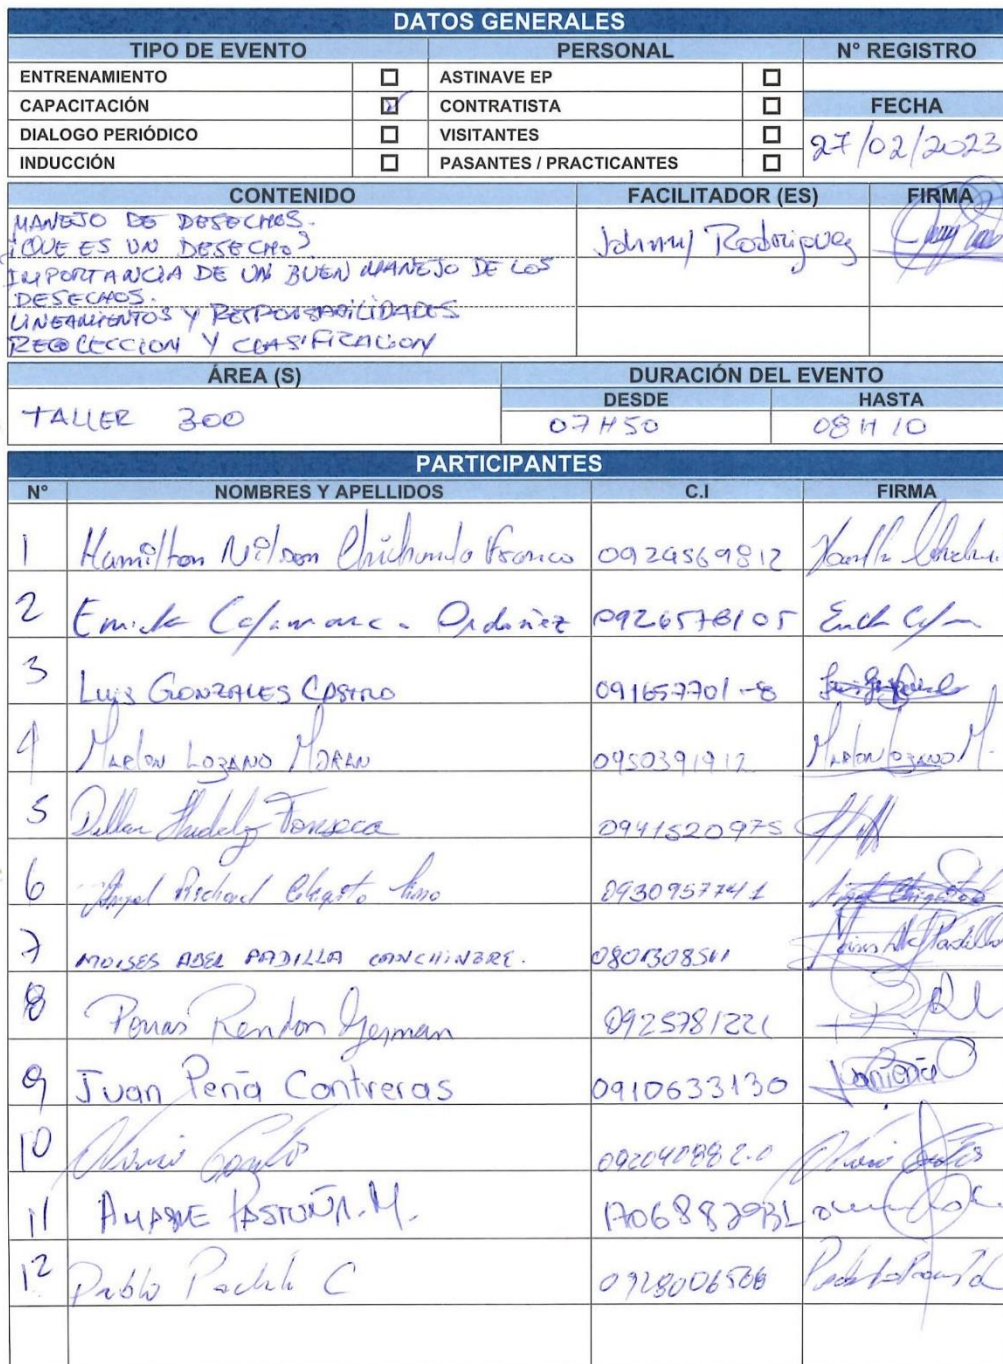 DATOS GENERALES
TIPO DE EVENTO PERSONAL N° REGISTRO
ENTRENAMIENTO ASTINAVE EP
CAPACITACIÓN CONTRATISTA FECHA
DIALOGO PERIÓDICO VISITANTES 27/02/2023
INDUCCIÓN PASANTES / PRACTICANTES
CONTENIDO FACILITADOR (ES) FIRMA
MANEJO DE DESECHOS. Johnny Rodriguez
¿QUE ES UN DESECHO?
IMPORTANCIA DE UN BUEN MANEJO DE LOS
DESECHOS.
LINEAMIENTOS Y RESPONSABILIDADES
RECOLECCION Y CLASIFICACION
ÁREA (S) DURACIÓN DEL EVENTO
DESDE HASTA
TALLER 300 07H50 08H10
PARTICIPANTES
N° NOMBRES Y APELLIDOS C.I FIRMA
1 Hamilton Nilson Franco 0924569812
2 Ordoñez
3 LUIS GONZALES CASTRO 091657701-8
4 MARLON LOZANO MORAN 0950391912 MARLON LOZANO M.
5 Fonseca 0941520975
6 Angel Richard 0930957741
7 MOISES ABEL PADILLA CANCHINGRE. 0801308511
8 Porras Rendon German 0925781221
9 Juan Peña Contreras 0910633130
10
11
12 Pablo C 0928006566